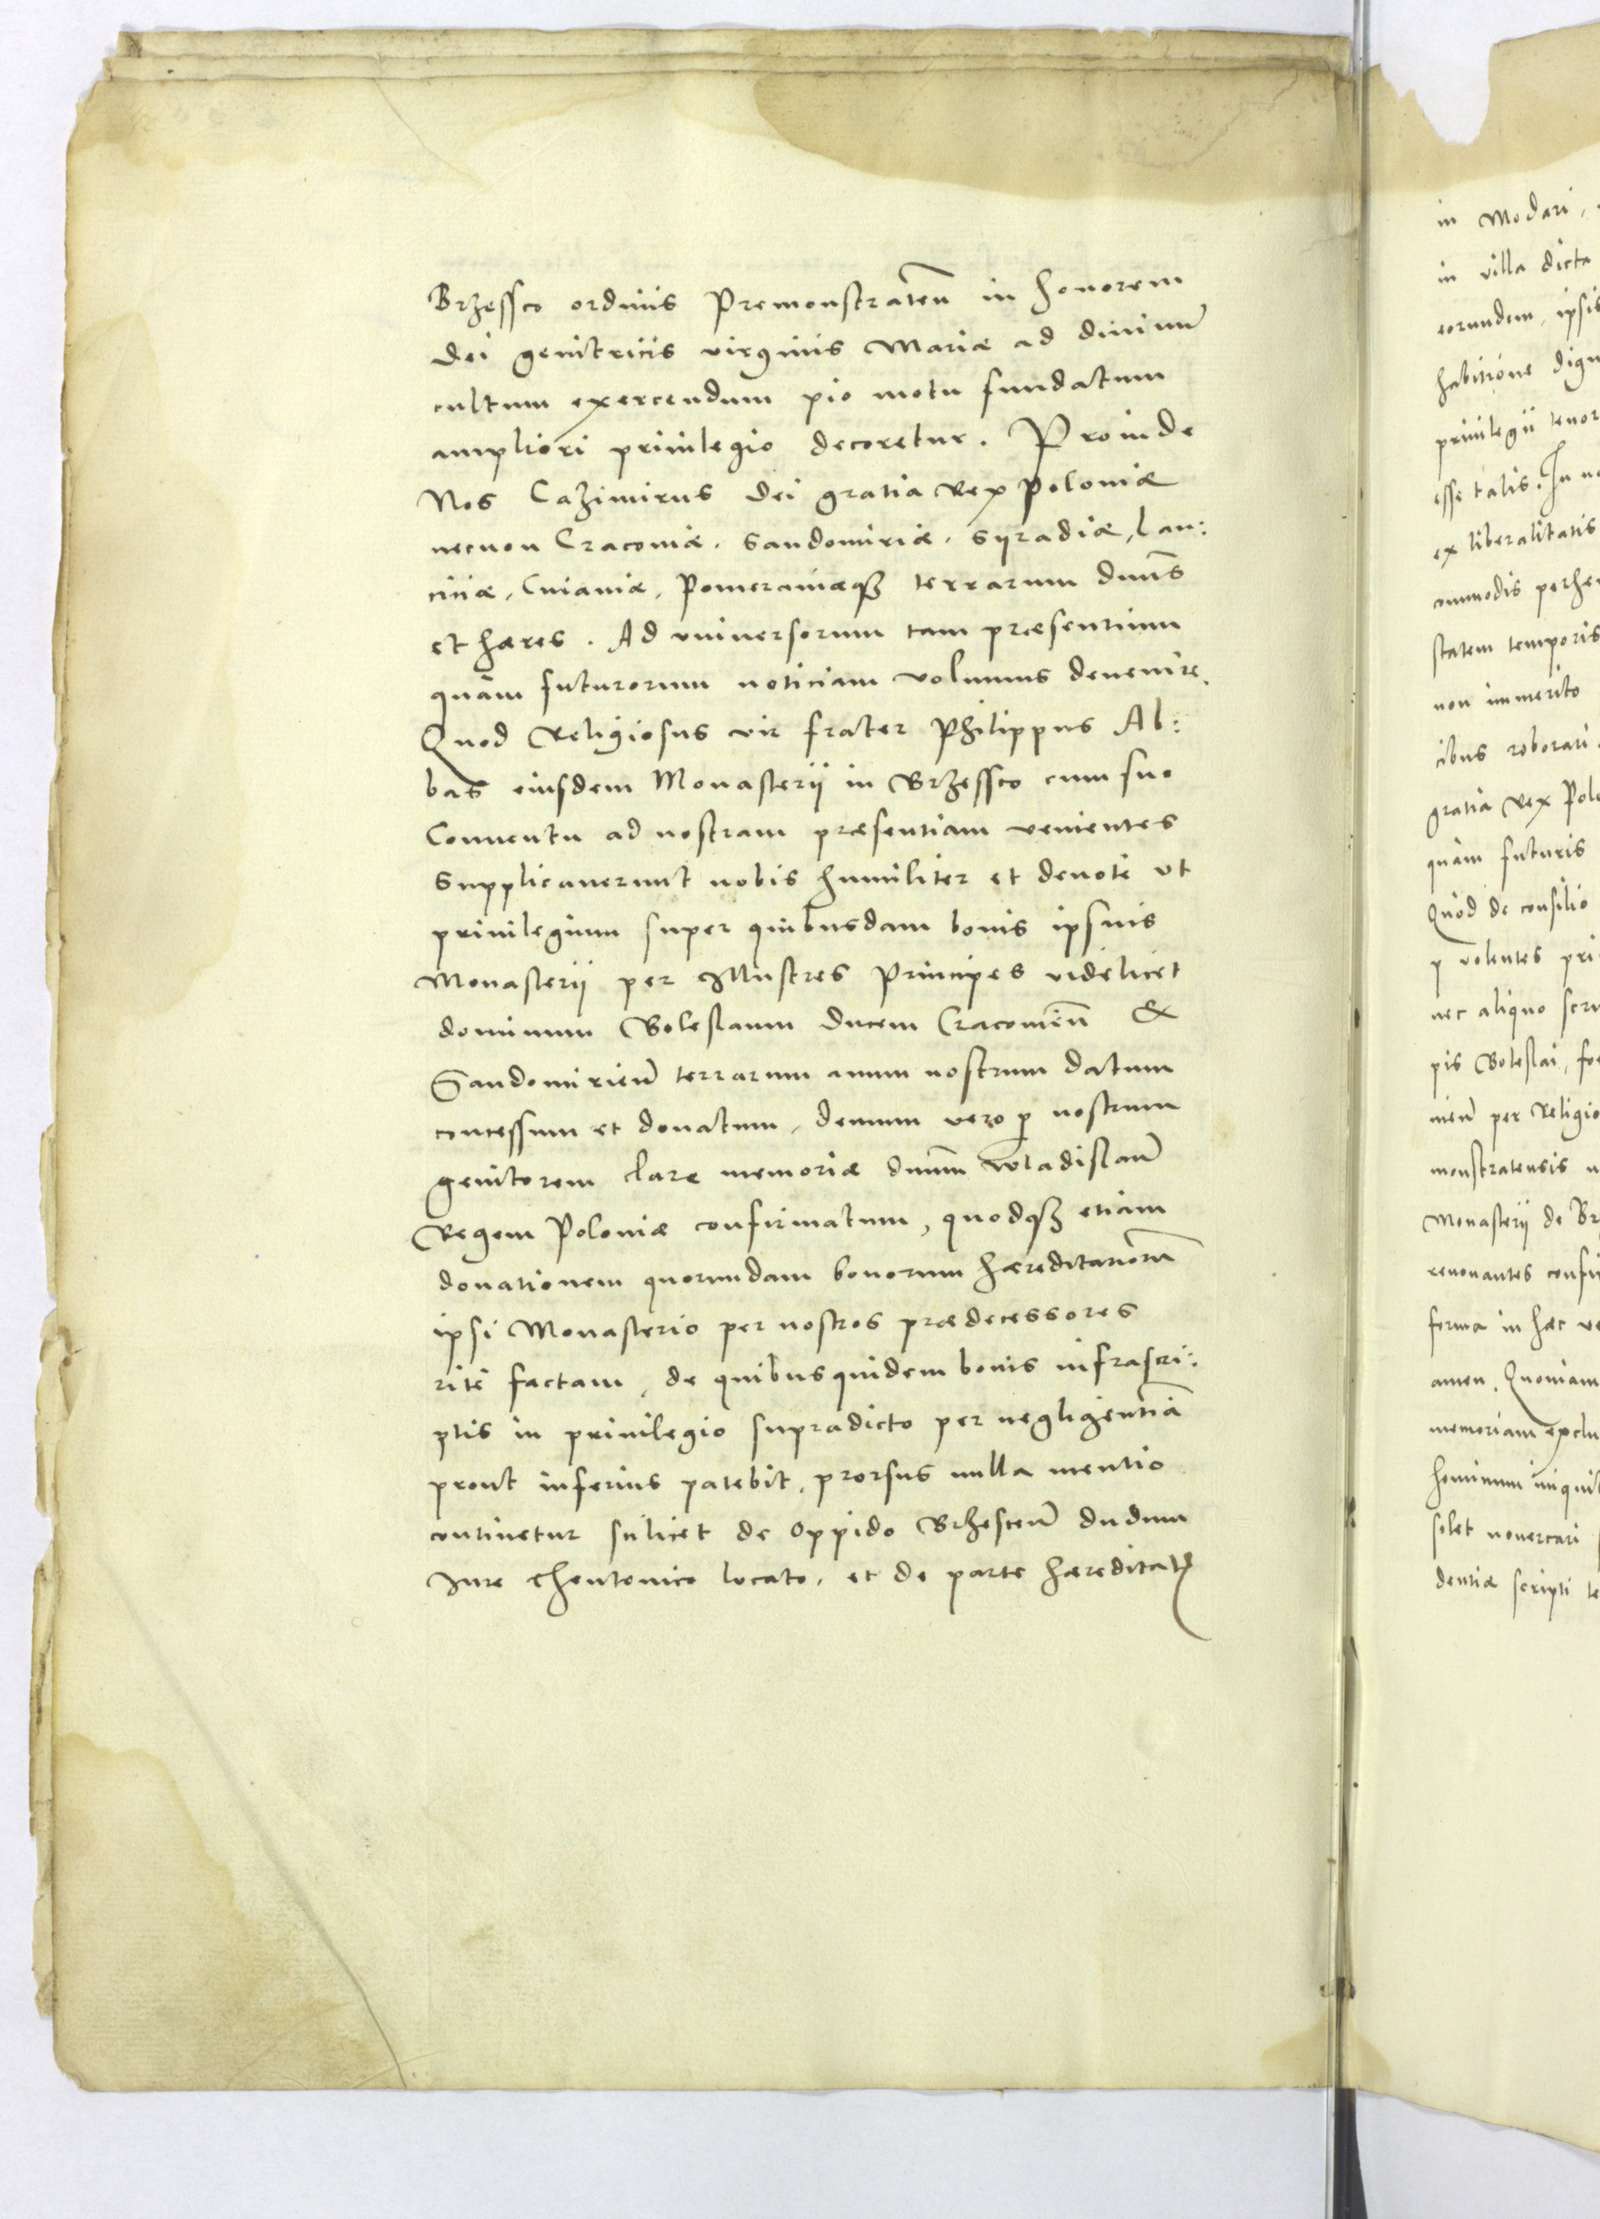 Brzessco ordinis Premonstraten̄ in honorem
dei genitricis virginis Mariæ ad diuinū
cultum exercendum pio motu fundatum
ampliori priuilegio decoretur. Proinde
Nos Cazimirus dei gratia Rex Poloniæ
necnon Cracouiæ. Sandomiriæ. Syradiæ, Lan:
ciciæ, Cuiauiæ, Pomeraniæq3 terrarum dn̄us
et hæres. Ad vniuersorum tam præsentium
quàm futurorum noticiam volumus deuenire.
Quod Religiosus vir frater Philippus Ab:
bas eiusdem Monasterij in Brzessco cum suo
Conuentu ad nostram præsentiam venientes
Supplicauerunt nobis humiliter et deuotè vt
priuilegium super quibusdam bonis ipsius
Monasterij per Illustres Principes videlicet
dominum Boleslaum ducem Cracouien̄ &
Sandomirien̄ terrarum auum nostrum datum
concessum et donatum, demum vero p̱ nostrum
genitorem claræ memoriæ dn̄um Wladislaū
Regem Poloniæ confirmatum, quodq3 etiam
donationem quorundam bonorum hæreditariorū
ipsi Monasterio per nostros prædecessores
ritè factam, de quibusquidem bonis infrascri:
ptis in priuilegio supradicto per negligentiā
prout inferius patebit, prorsus nulla mentio
continetur scilicet de Oppido Brzescen̄ dudum
Iure theutonico locato, et de parte hæreditatꝭ
in Modari,
in villa dicta
eorundem, ipsis
habitione dign
priuilegij tenor
esse talis. In no
ex liberalitatis
commodis perhe
statem temporis
non immerito
cibus roborari.
gratia Rex Pol
quàm futuris
Quòd de consilio
volentes pri
nec aliquo scru
pis Boleslai, fo
nien̄ per Religio
monstratensis
Monasterij de Br
renouantes confir
forma in hæc ve
amen. Quoniam
memoriam exclu
hominum iniquit
solet nouercari
dentiæ scripti te